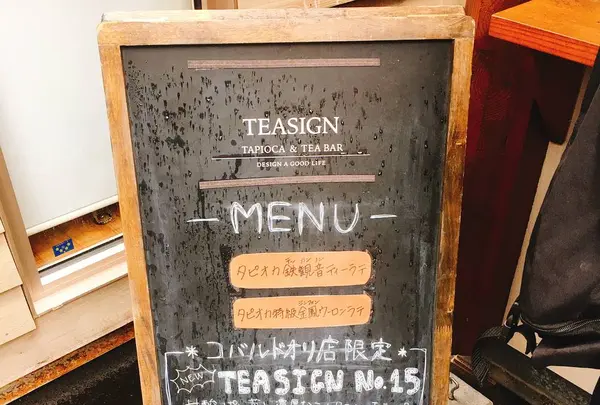 TEASIGN
TAPIOCA & TEA BAR
DESIGN A GOOD LIFE
MENU
タピオカ鉄観音ティーラテ
タピオカ特級金鳳ウーロンラテ
*コバルドオリ店限定*
NEW TEASIGN No.15